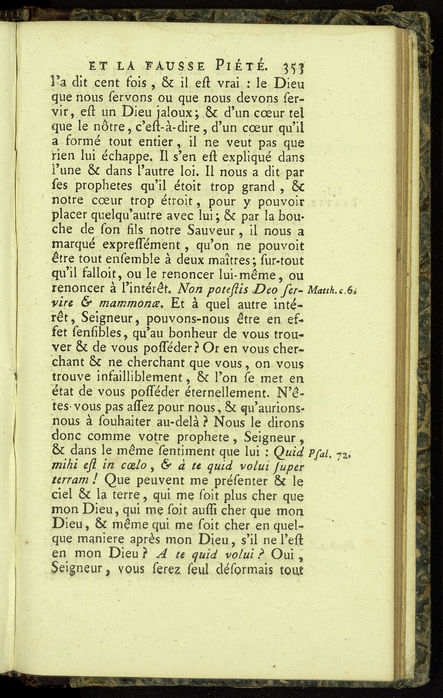 ET LA FAUSSE PIÉTÉ. 353
l'a dit cent fois, & il eſt vrai : le Dieu
que nous ſervons ou que nous devons ſer-
vir, eſt un Dieu jaloux; & d'un cœur tel
que le nôtre, c'eſt-à-dire, d'un cœur qu'il
a formé tout entier, il ne veut pas que
rien lui échappe. Il s'en eſt expliqué dans
l'une & dans l'autre loi. Il nous a dit par
ſes prophetes qu'il étoit trop grand, &
notre cœur trop étroit, pour y pouvoir
placer quelqu'autre avec lui; & par la bou-
che de ſon fils notre Sauveur, il nous a
marqué expreſſément, qu'on ne pouvoit
être tout enſemble à deux maîtres; ſur-tout
qu'il falloit, ou le renoncer lui-même, ou
renoncer à l'intérêt. Non poteſtis Deo ſer- Matth. c. 6.
vire & mammonæ. Et à quel autre inté-
rêt, Seigneur, pouvons-nous être en ef-
fet ſenſibles, qu'au bonheur de vous trou-
ver & de vous poſſéder? Or en vous cher-
chant & ne cherchant que vous, on vous
trouve infailliblement, & l'on ſe met en
état de vous poſſéder éternellement. N'ê-
tes-vous pas aſſez pour nous, & qu'aurions-
nous à ſouhaiter au-delà? Nous le dirons
donc comme votre prophete, Seigneur,
& dans le même ſentiment que lui : Quid Pſal. 72.
mihi eſt in cœlo, & à te quid volui ſuper
terram! Que peuvent me préſenter & le
ciel & la terre, qui me ſoit plus cher que
mon Dieu, qui me ſoit auſſi cher que mon
Dieu, & même qui me ſoit cher en quel-
que maniere après mon Dieu, s'il ne l'eſt
en mon Dieu? A te quid volui? Oui,
Seigneur, vous ſerez ſeul déſormais tout